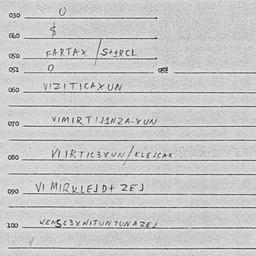 030 0
040 $
050 FARTAX / S+1RCL
051 0 052
060 VIZITICAXUN
070 VIMIRTIJ1NZA-XUN
080 VIIRTIC3XUN/KLEJCAX
090 VI MIRKLEJD+ ZEJ
100 VENSC3XNITUNTUNAZEJ